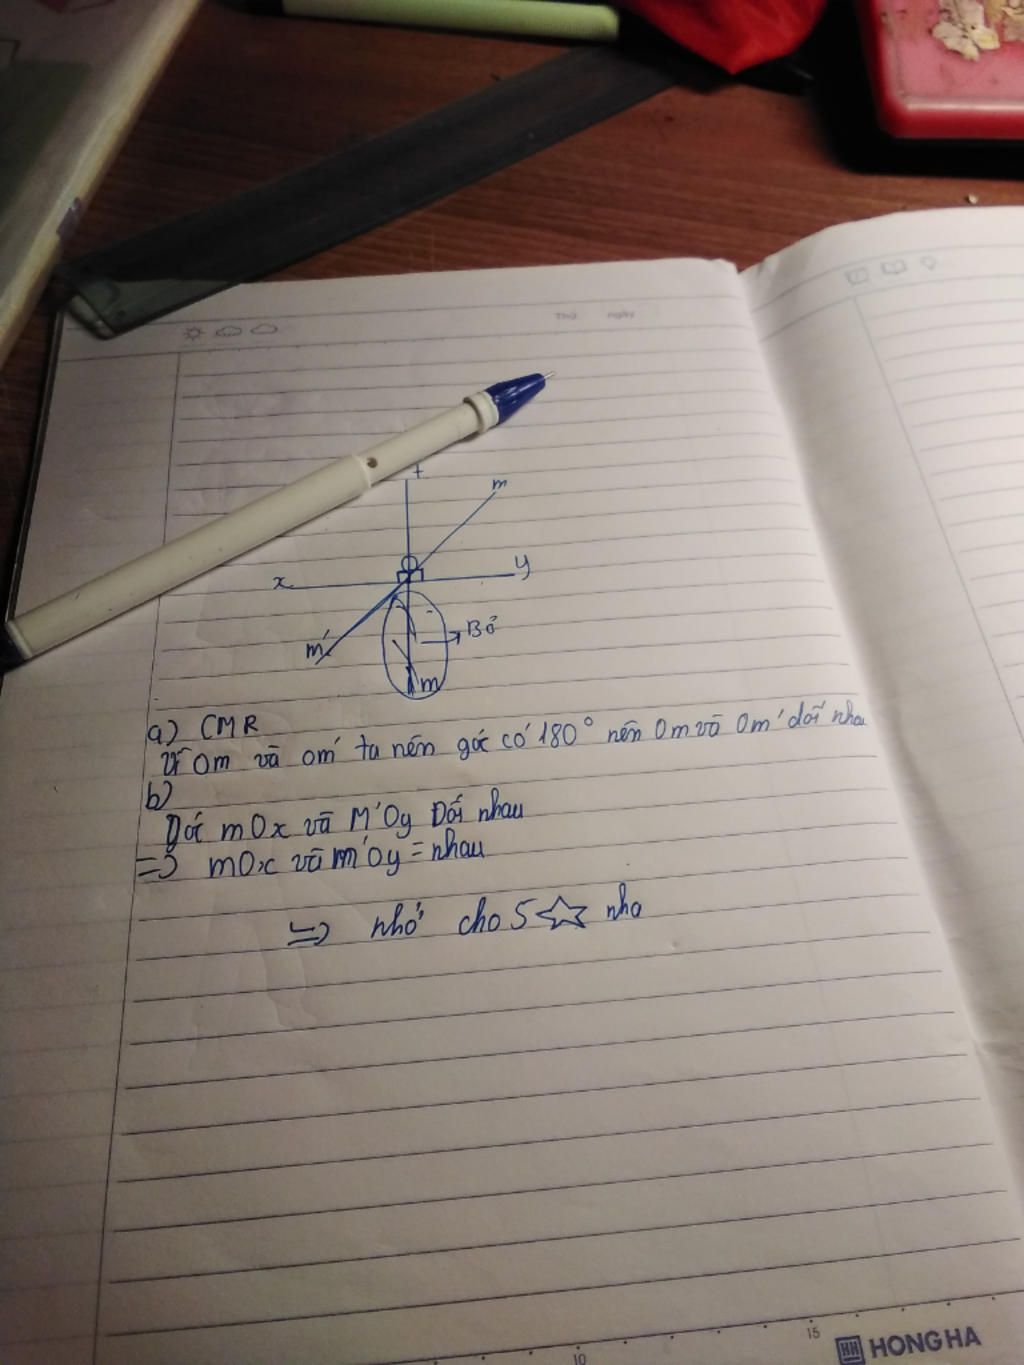 Thứ ngày
t
m
x
y
m'
Bỏ
m
a) CMR
Vì Om và om' ta nên góc có 180° nên Om và Om' đối nha
b)
Dóc mOx và M'Oy Đối nhau
=> mOx và m'Oy = nhau
=> nhớ cho 5 ☆ nha
10
15
HH HONG HA